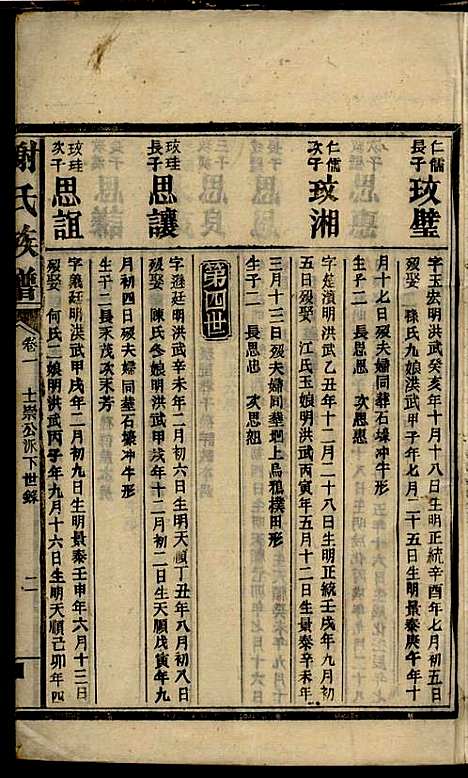 仁儒長子 玫璧
字玉宏明洪武癸亥年十月十八日生明正統辛酉年七月初五日
歿娶 孫氏九娘明洪武甲子年七月二十五日生明景泰庚午年十
月十七日歿夫婦同葬石壕冲牛形
生子二 長思恩 次思惠
仁儒次子 玫湘
字楚濱明洪武乙丑年十二月二十八日生明正統壬戌年九月初
五日歿娶 江氏玉娘明洪武丙寅年五月十二日生景泰辛未年
三月十三日歿夫婦同葬 上烏鴉樸田形
生子二 長思忠 次思妞
第四世
玫珪長子 思讓
字遜廷明洪武辛未年二月初六日生明天順丁丑年八月初八日
歿娶 陳氏冬娘明洪武甲戌年十二月初二日生明天順戊寅年九
月初四日歿夫婦同葬石壕冲牛形
生子二長永茂次永芳
玫珪次子 思誼
字義廷明洪武甲戌年二月初九日生明景泰壬申年六月十三日
歿娶 何氏二娘明洪武丙子年九月十六日生明天順己卯年四
謝氏族譜 卷一 士崇公派下世錄 二